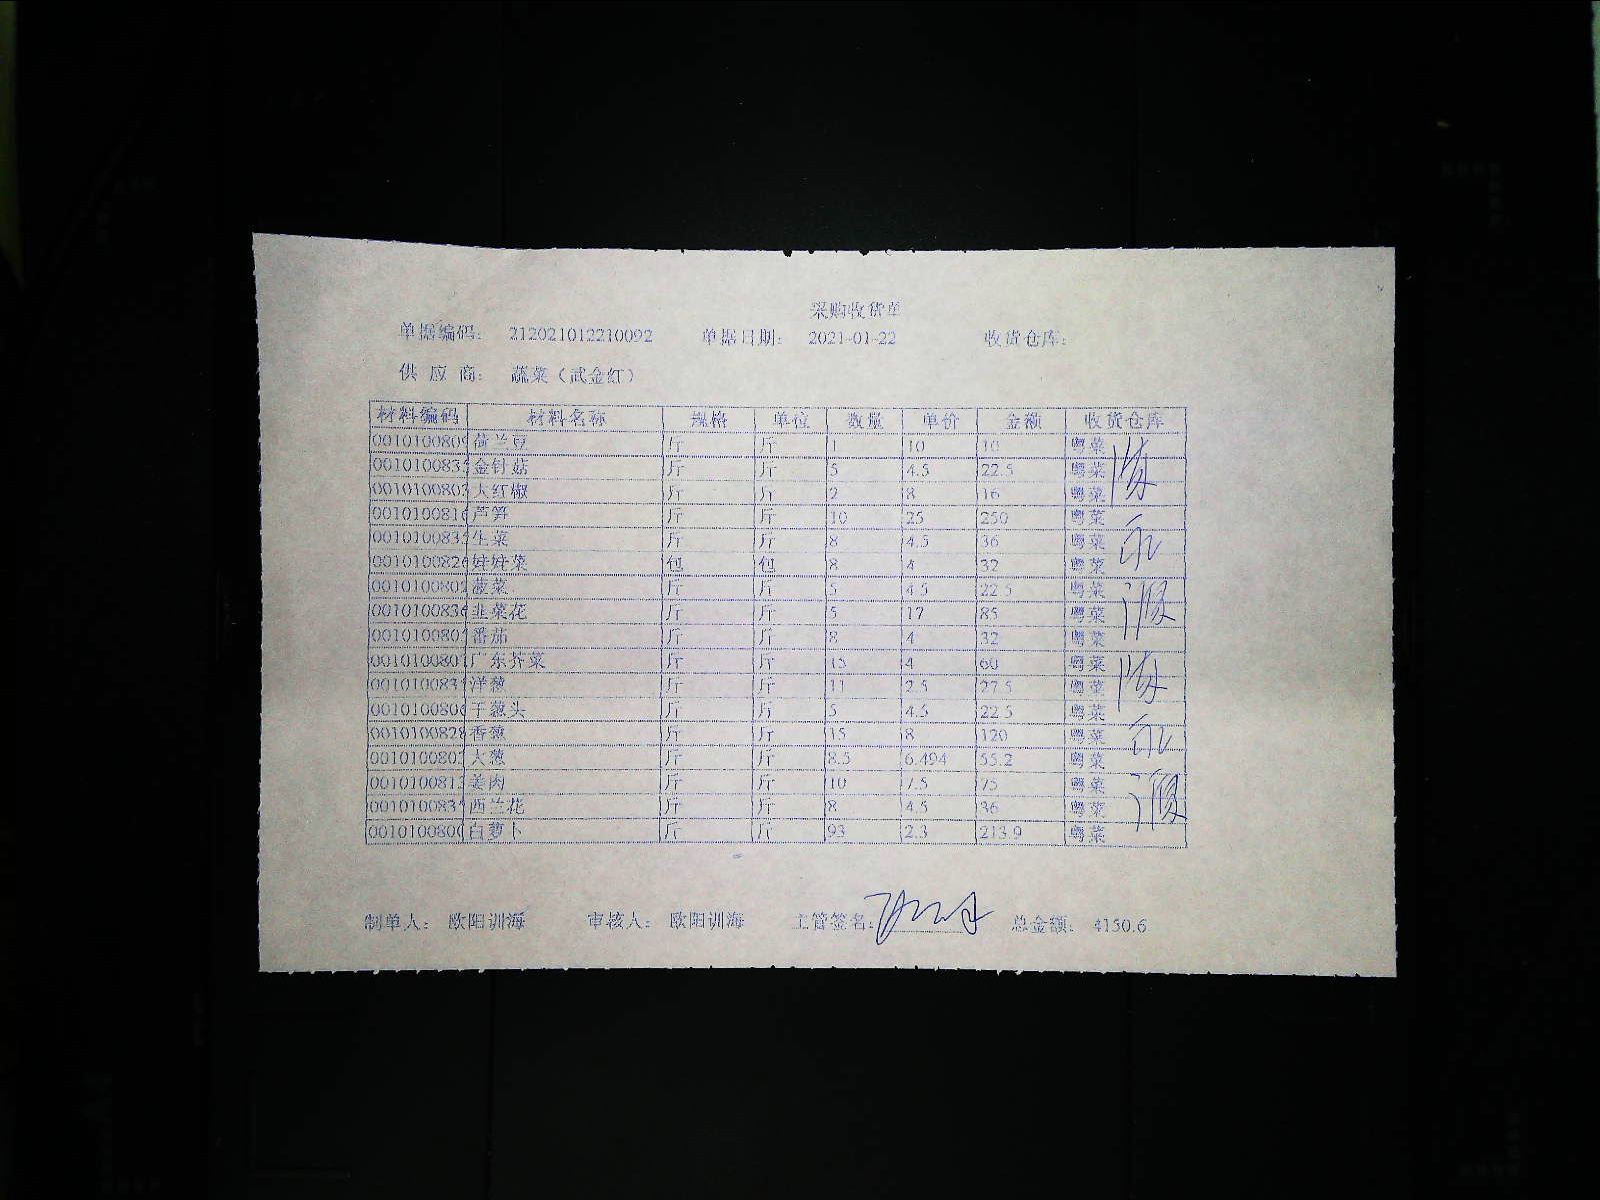 采购收货单
单据编码: 212021012210092 单据日期: 2021-01-22 收货仓库:
供 应 商: 蔬菜（武金红）
材料编码 材料名称 规格 单位 数量 单价 金额 收货仓库
0010100809 荷兰豆 斤 斤 1 10 10 粤菜
001010083 金针菇 斤 斤 5 4.5 22.5 粤菜
001010080 大红椒 斤 斤 2 8 16 粤菜
001010081 芦笋 斤 斤 10 25 250 粤菜
001010083 生菜 斤 斤 8 4.5 36 粤菜
001010082 娃娃菜 包 包 8 4 32 粤菜
001010080 菠菜 斤 斤 5 4.5 22.5 粤菜
001010083 韭菜花 斤 斤 5 17 85 粤菜
001010080 番茄 斤 斤 8 4 32 粤菜
001010080 广东芥菜 斤 斤 15 4 60 粤菜
001010083 洋葱 斤 斤 11 2.5 27.5 粤菜
001010080 干葱头 斤 斤 5 4.5 22.5 粤菜
001010082 香葱 斤 斤 15 8 120 粤菜
001010080 大葱 斤 斤 8.5 6.494 55.2 粤菜
001010081 姜肉 斤 斤 10 7.5 75 粤菜
001010083 西兰花 斤 斤 8 4.5 36 粤菜
001010080 白萝卜 斤 斤 93 2.3 213.9 粤菜
制单人: 欧阳训海 审核人: 欧阳训海 主管签名: 总金额: 4150.6